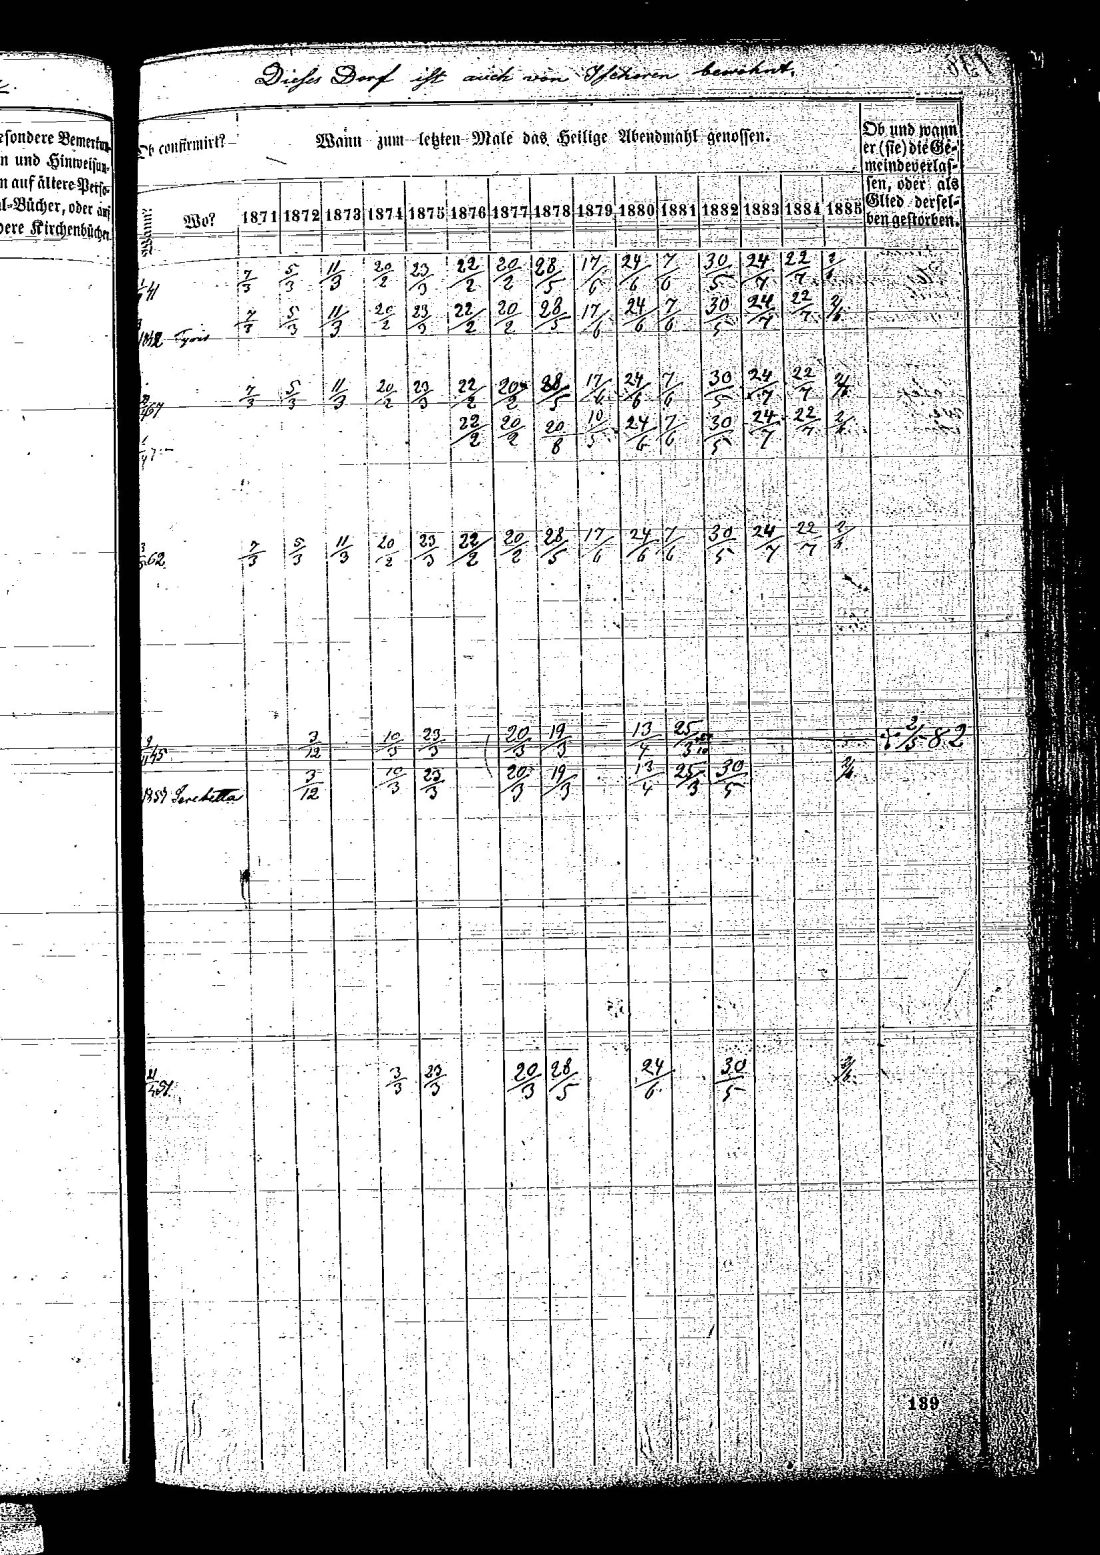 Dieses Dorf ist auch von Ischoren bewohnt.
esondere Bemerkun-
n und Hinweisun-
n auf ältere Perso-
al-Bücher, oder auf
dere Kirchenbücher
Ob confirmirt?
Wann?
Wo?
Wann zum letzten Male das Heilige Abendmahl genossen.
Ob und wann
er (sie) die Ge-
meinde verlas-
sen, oder als
Glied dersel-
ben gestorben.
1871 1872 1873 1874 1875 1876 1877 1878 1879 1880 1881 1882 1883 1884 1885
41 7/3 5/3 11/3 20/2 23/3 22/2 20/2 28/5 17/6 24/6 7/6 30/5 24/7 22/7 2/6
1842 Tyrö 7/3 5/3 11/3 20/2 23/3 22/2 20/2 28/5 17/6 24/6 7/6 30/5 24/7 22/7 2/6
67 7/3 5/3 11/3 20/2 23/3 22/2 20/2 28/5 17/6 24/6 7/6 30/5 24/7 22/7 2/6
22/2 20/2 20/8 10/5 24/6 7/6 30/5 24/7 22/7 2/6
62 7/3 5/3 11/3 20/2 23/3 22/2 20/2 28/5 17/6 24/6 7/6 30/5 24/7 22/7 2/6
45 3/12 10/3 23/3 20/3 19/3 13/4 25/3 † 2/5 82
1859 3/12 10/3 23/3 20/3 19/3 13/4 25/3 30/5 2/6
3/3 23/3 20/3 28/5 24/6 30/5 2/6
139